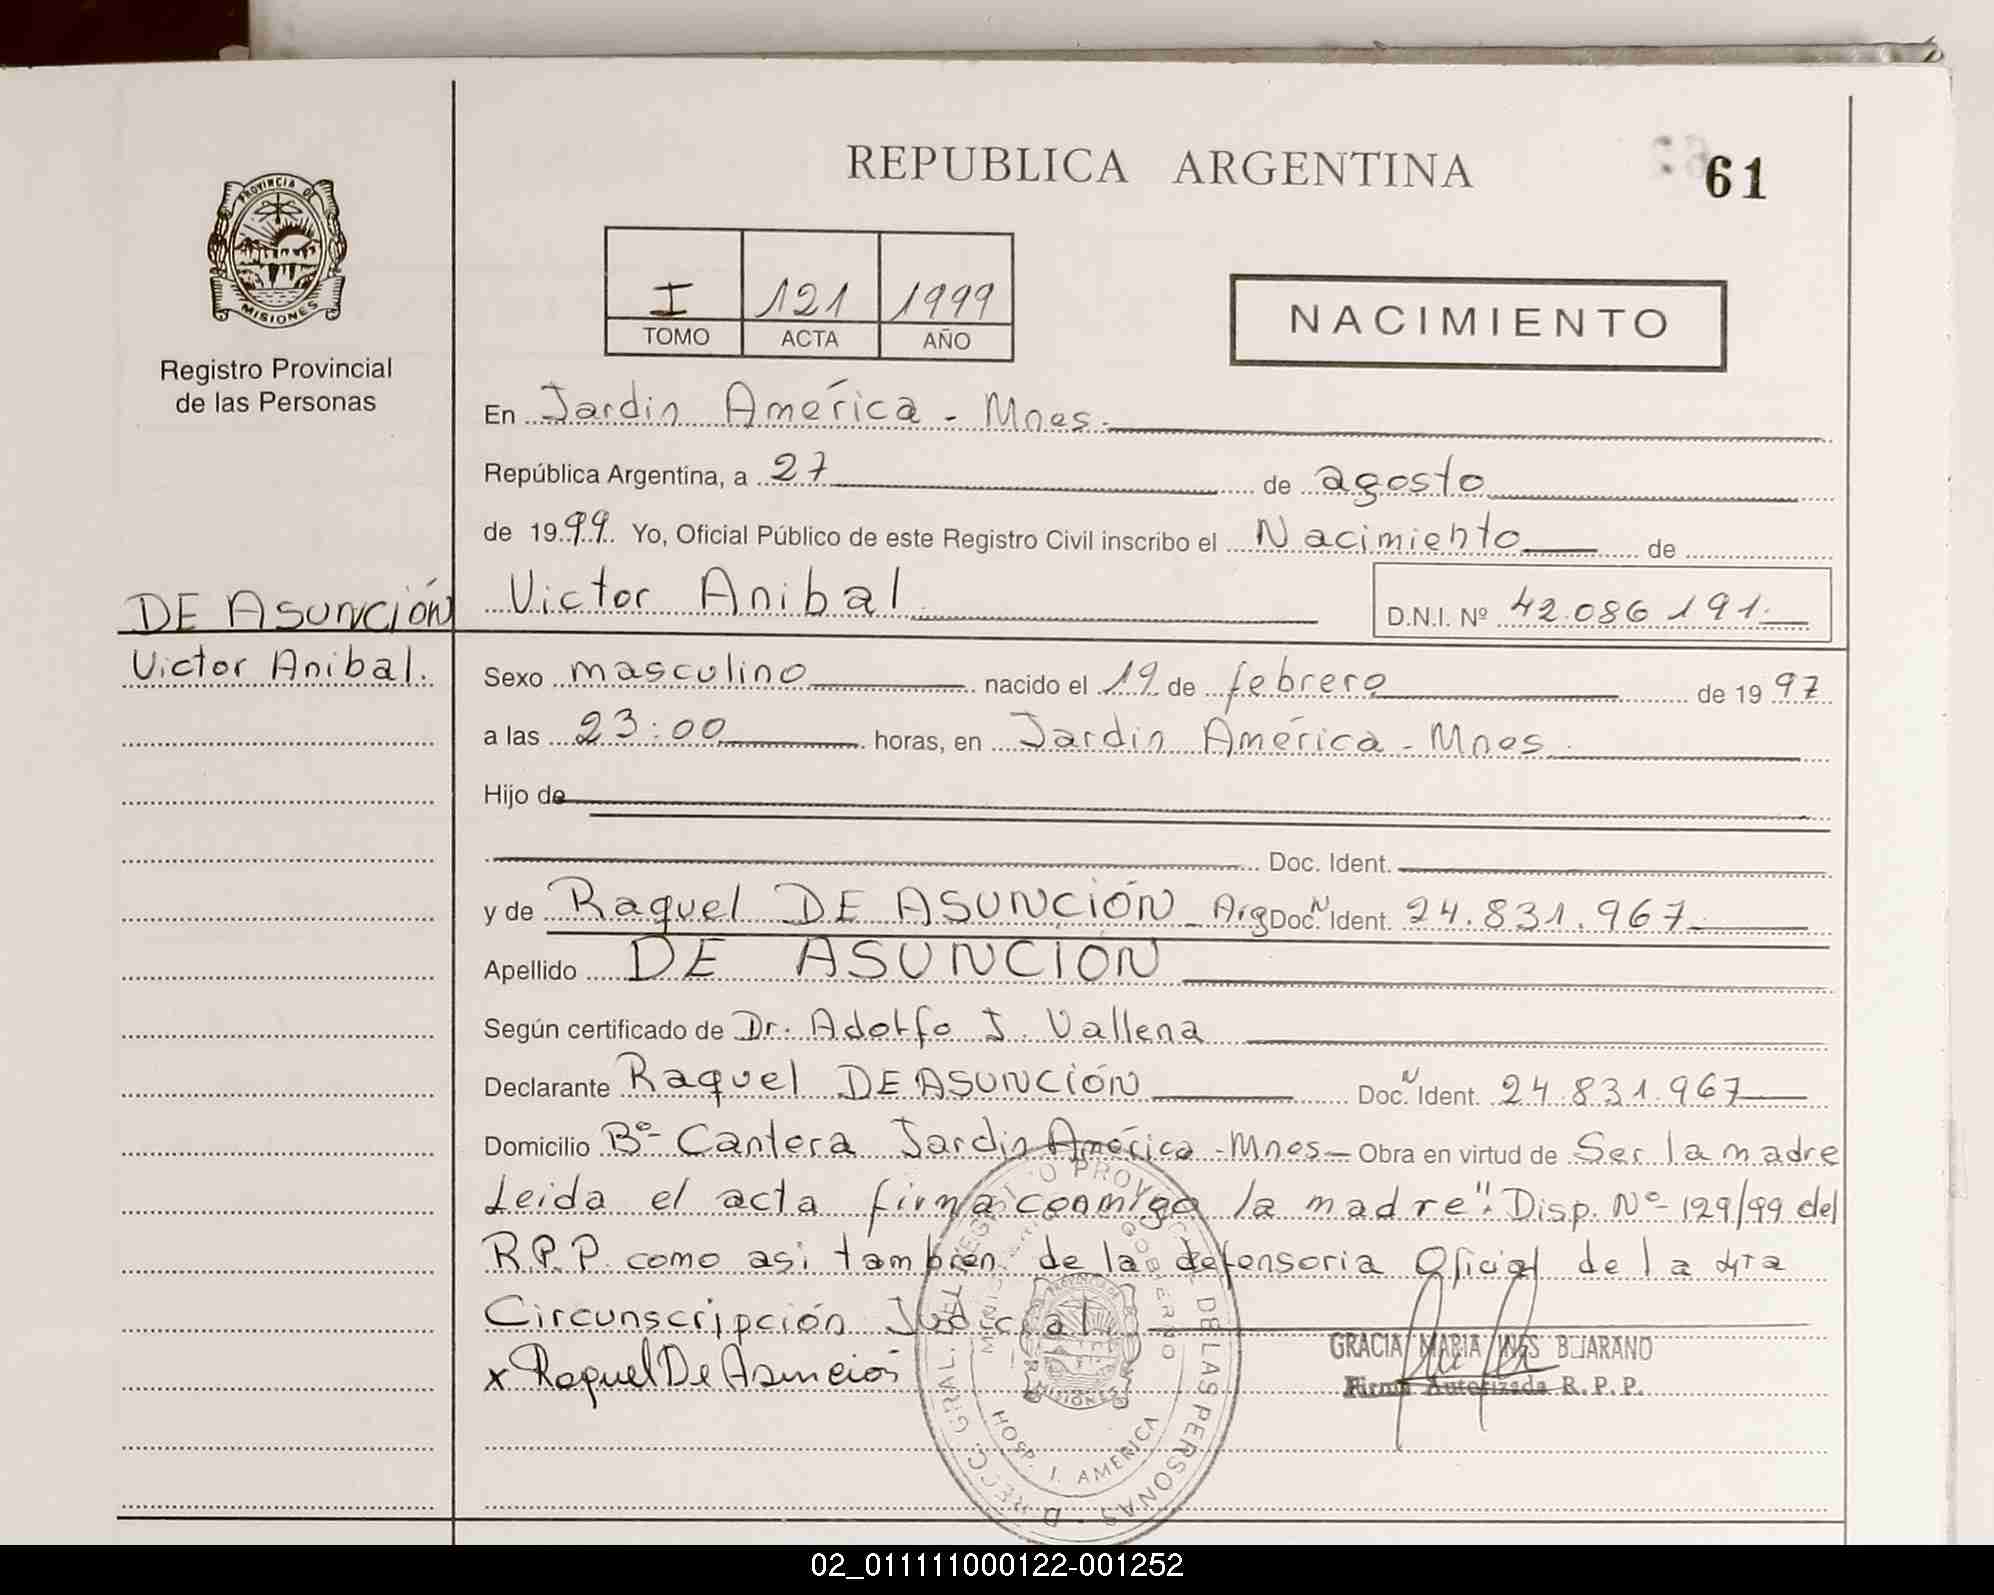 REPUBLICA ARGENTINA
61
PROVINCIA DE
MISIONES
Registro Provincial
de las Personas
I 121 1999
TOMO ACTA AÑO
NACIMIENTO
En Jardin América - Mnes.
República Argentina, a 27 de agosto
de 1999 Yo, Oficial Público de este Registro Civil inscribo el Nacimiento de
DE ASUNCIÓN
Victor Anibal.
Victor Anibal D.N.I. Nº 42.086.191.
Sexo masculino nacido el 19 de febrero de 1997
a las 23:00 horas, en Jardin América - Mnes.
Hijo de
Doc. Ident.
y de Raquel DE ASUNCIÓN Arg Doc. N Ident. 24.831.967
Apellido DE ASUNCIÓN
Según certificado de Dr. Adolfo J. Vallena
Declarante Raquel DE ASUNCIÓN Doc. N Ident. 24.831.967
Domicilio Bº Cantera Jardin América - Mnes - Obra en virtud de Ser la madre
Leida el acta firma conmigo la madre". Disp. Nº 129/99 del
R.P.P. como asi tambien de la defensoria Oficial de la 4ta
Circunscripción Judicial
x Raquel De Asunción
GRACIA MARIA INES BEJARANO
Firma Autorizada R.P.P.
DIRECC. GRAL. DEL REGISTRO PROVINC. DE LAS PERSONAS
MINISTERIO GOBIERNO
MISIONES
HOSP. J. AMERICA
02_011111000122-001252